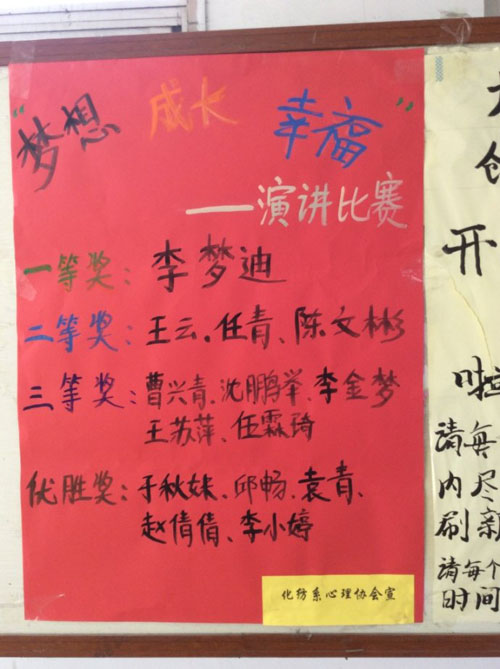 “梦想 成长 幸福”
——演讲比赛
一等奖：李梦迪
二等奖：王云、任青、陈文彬
三等奖：曹兴青、沈鹏举、李金梦
王苏萍、伍霖琦
优胜奖：于秋妹、邱畅、袁青、
赵倩倩、李小婷
化纺系心理协会宣
开
啦
请每
内尽
刷新
请每个
时间